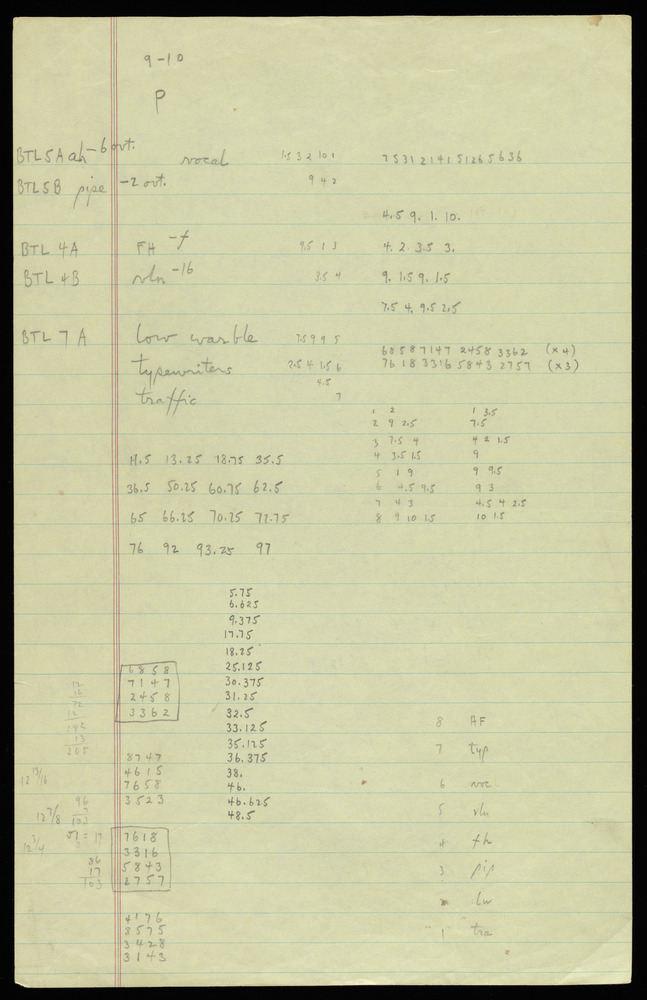 9-10
P
BTL5A ah - 6 out. vocal 1.5 3 2 10 1 7 5 3 1 2 1 4 1 5 1 2 6 5 6 3 6
BTL5B pipe - 2 out. 9 4 2
4.5 9. 1. 10.
BTL 4A FH - f 9.5 1 3 4. 2. 3.5 3.
BTL 4B vln - 16 3.5 4 9. 1.5 9. 1.5
7.5 4. 9.5 2.5
BTL 7A low warble 7.5 9 9 5
68587147 2458 3362 (x4)
typewriters 2.5 4 1.5 6 7618 3316 5843 2757 (x3)
4.5
traffic 7
1 2 1 3.5
2 9 2.5 7.5
3 7.5 4 4 2 1.5
4 3.5 1.5 9
11.5 13.25 18.75 35.5
5 1 9 9 9.5
36.5 50.25 60.75 62.5 6 4.5 9.5 9 3
7 4 3 4.5 4 2.5
65 66.25 70.25 71.75 8 9 10 1.5 10 1.5
76 92 93.25 97
5.75
6.625
9.375
17.75
18.25
6858 25.125
12 7147 30.375
16 2458 31.25
72 3362 32.5
12 33.125 8 AF
192
13 35.125
205 8747 36.375 7 typ
12 13/16 4615 38.
7658 46. 6 voc
96 3523 46.625
12 7/8 103 48.5 5 vln
12 3/4 51 = 17 7618
3316 4 fh
86 5843
17 2757 3 pip
103
lw
4176
8575 1 tra
3428
3143